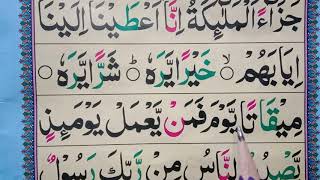 جَزَآءً الْمَلٰٓئِكَةُ اِنَّاۤ اَعْطَيْنَا اِلَيْنَاۤ
اِيَابَهُمْ خَيْرًا يَّرَهٗ شَرًّا يَّرَهٗ
مِيْقَاتًا يَّوْمَ فَمَنْ يَّعْمَلْ يَوْمَئِذٍ
يَّصْدُرُ النَّاسُ مِنْ رَّبِّكَ رَسُوْلٌ